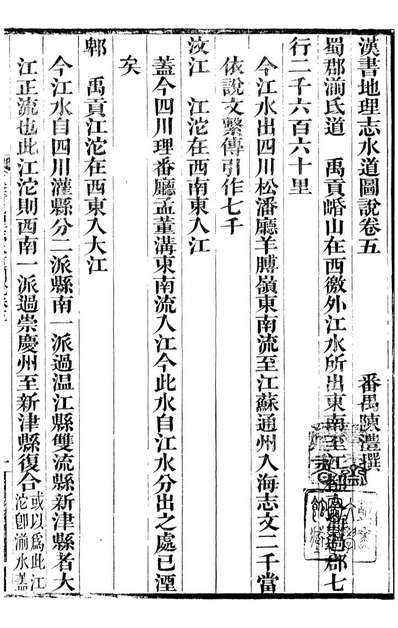 漢書地理志水道圖說卷五
番禺陳澧撰
蜀郡湔氐道　禹貢㟭山在西徼外江水所出東南至江都入海過郡七
行二千六百六十里
今江水出四川松潘廳羊膊嶺東南流至江蘇通州入海志文二千當
依說文繫傳引作七千
汶江　江沱在西南東入江
蓋今四川理番廳孟董溝東南流入江今此水自江水分出之處已湮
矣
郫　禹貢江沱在西東入大江
今江水自四川灌縣分二派縣南一派過温江縣雙流縣新津縣者大
江正流也此江沱則西南一派過崇慶州至新津縣復合或以爲此江
沱卽湔水蓋